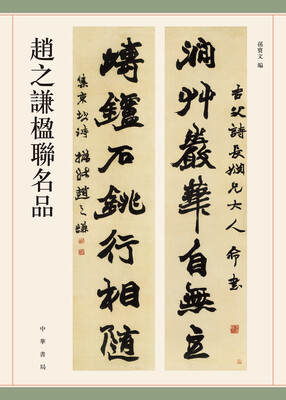 孫寶文 編
澗艸巖華自無主
詩長姻兄大人命書
塼鑪石銚行相隨
集東坡詩 撝叔趙之謙
趙之謙楹聯名品
中華書局